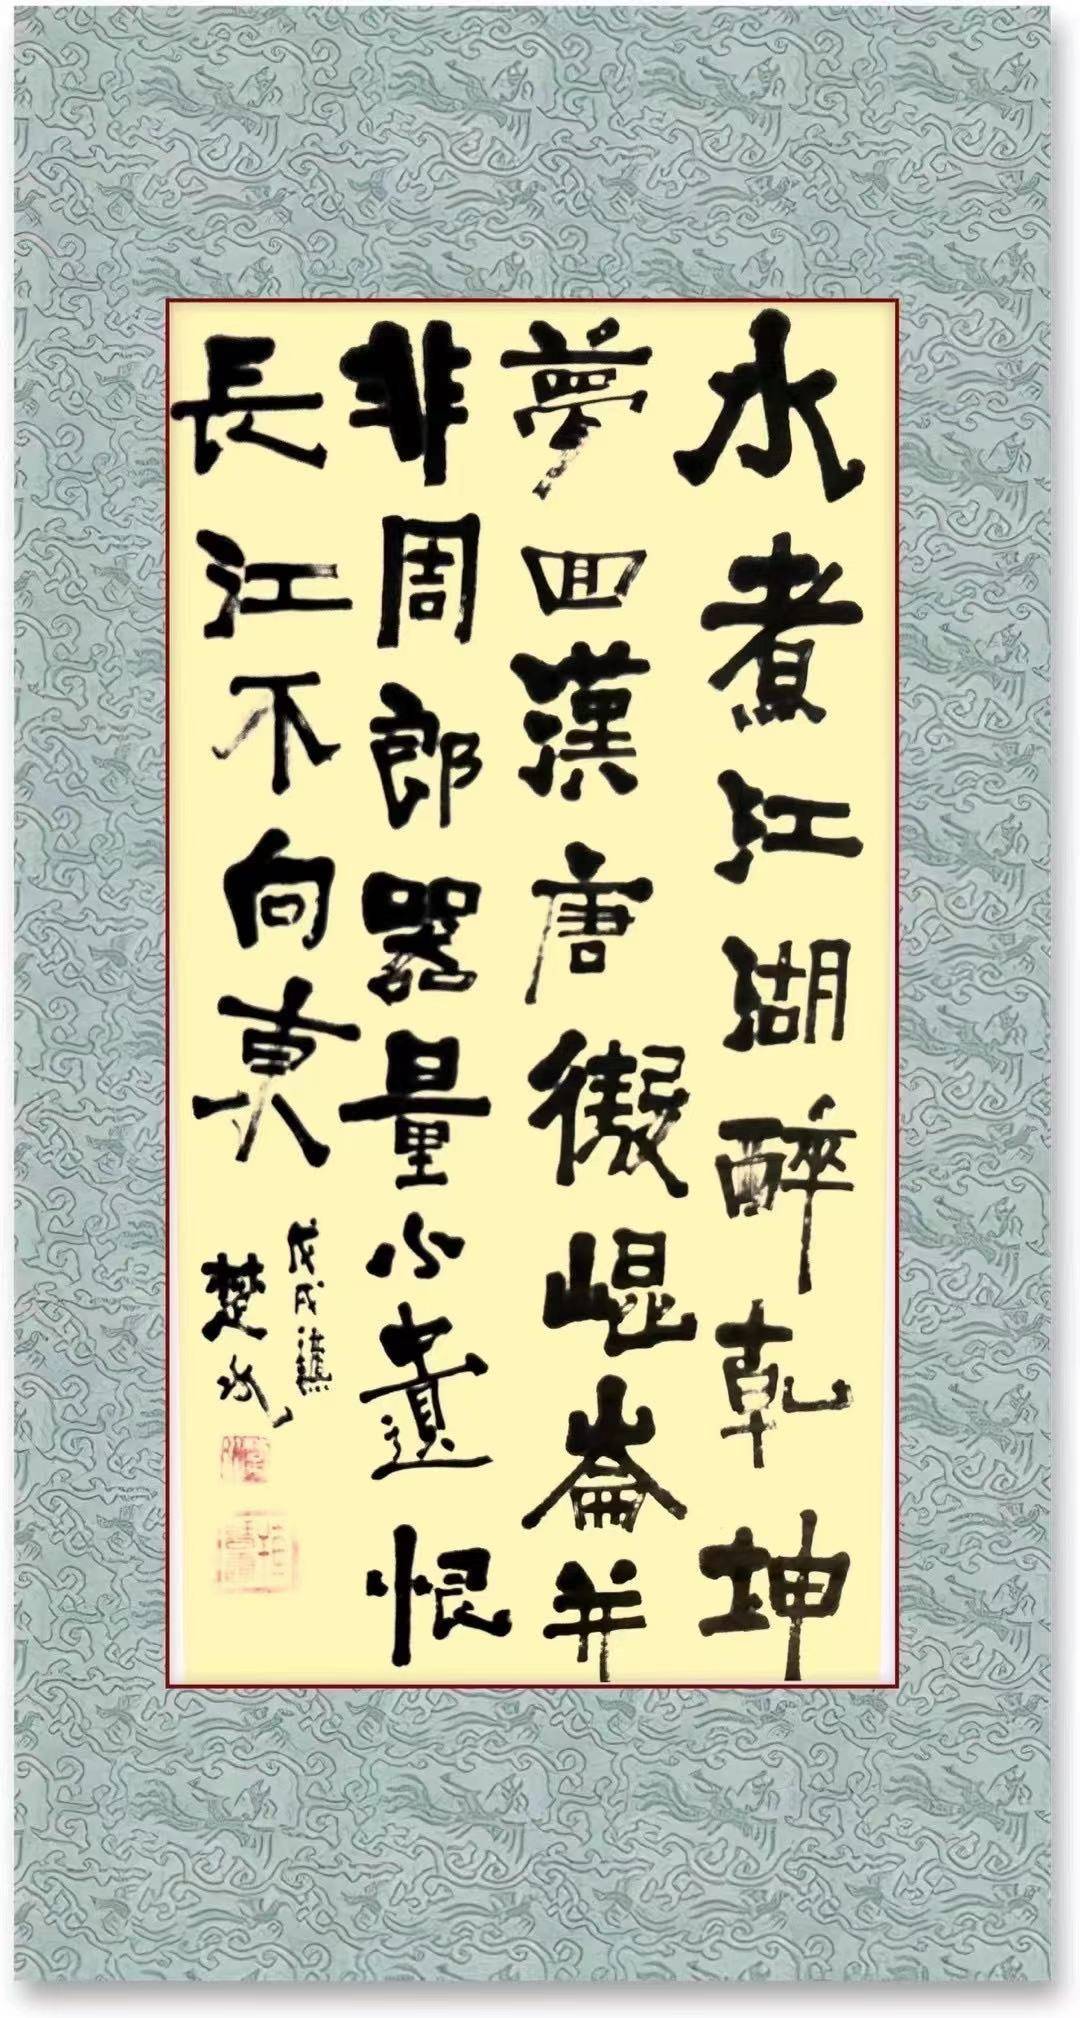 水煮江湖醉乾坤
夢回漢唐崐崙并
非周郎器量小遺恨
長江不向東
戊戌
楚